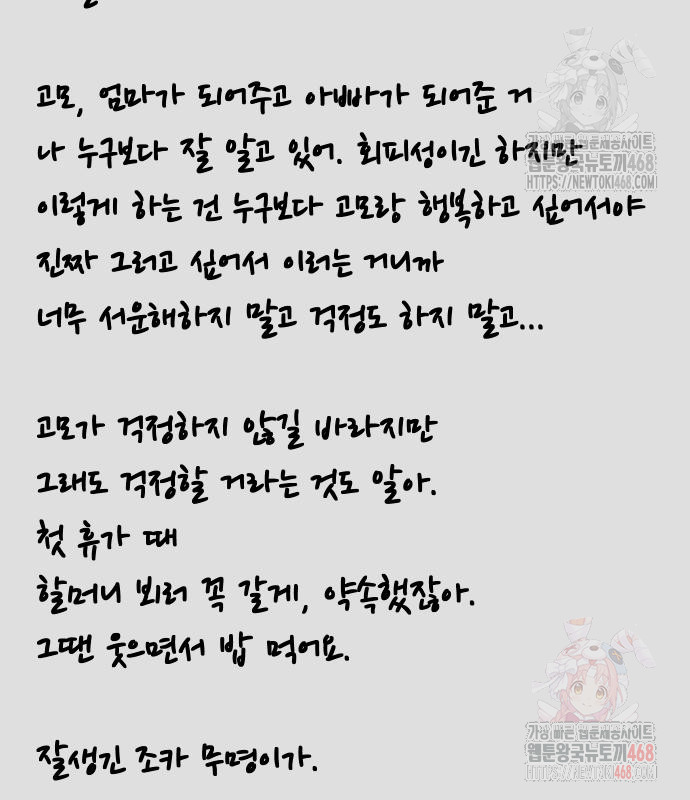 고모, 엄마가 되어주고 아빠가 되어준 거
나 누구보다 잘 알고 있어. 회피성이긴 하지만
이렇게 하는 건 누구보다 고모랑 행복하고 싶어서야
진짜 그러고 싶어서 이러는 거니까
너무 서운해하지 말고 걱정도 하지 말고...
고모가 걱정하지 않길 바라지만
그래도 걱정할 거라는 것도 알아.
첫 휴가 때
할머니 뵈러 꼭 갈게, 약속했잖아.
그땐 웃으면서 밥 먹어요.
잘생긴 조카 무명이가.
가장 빠른 웹툰제공사이트
웹툰왕국뉴토끼468
HTTPS://NEWTOKI468.COM
가장 빠른 웹툰제공사이트
웹툰왕국뉴토끼468
HTTPS://NEWTOKI468.COM